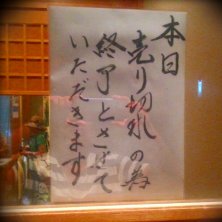 本日
売り切れの為
終了とさせて
いただきます